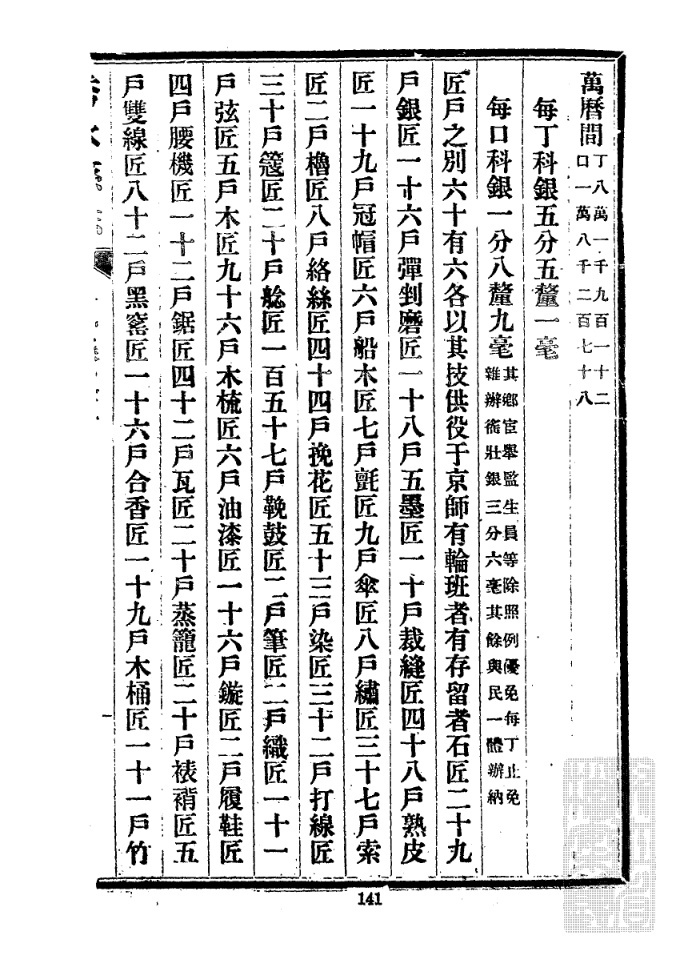 萬曆間丁八萬一千九百一十二口一萬八千二百七十八
每丁科銀五分五釐一毫
每口科銀一分八釐九毫其鄉宦舉監生員等除照例優免每丁止免雜辦衞壯銀三分六毫其餘與民一體辦納
匠戶之別六十有六各以其技供役于京師有輪班者有存留者石匠二十九
戶銀匠一十六戶彈剉磨匠一十八戶五墨匠一十戶裁縫匠四十八戶熟皮
匠一十九戶冠帽匠六戶船木匠七戶氈匠九戶傘匠八戶繡匠三十七戶索
匠二戶櫓匠八戶絡絲匠四十四戶挽花匠五十三戶染匠三十二戶打線匠
三十戶簆匠二十戶艌匠一百五十七戶鞔鼓匠二戶筆匠二戶織匠一十一
戶弦匠五戶木匠九十六戶木梳匠六戶油漆匠一十六戶鏇匠二戶履鞋匠
四戶腰機匠一十二戶鋸匠四十二戶瓦匠二十戶蒸籠匠二十戶裱褙匠五
戶雙線匠八十二戶黑窰匠一十六戶合香匠一十九戶木桶匠一十一戶竹
141